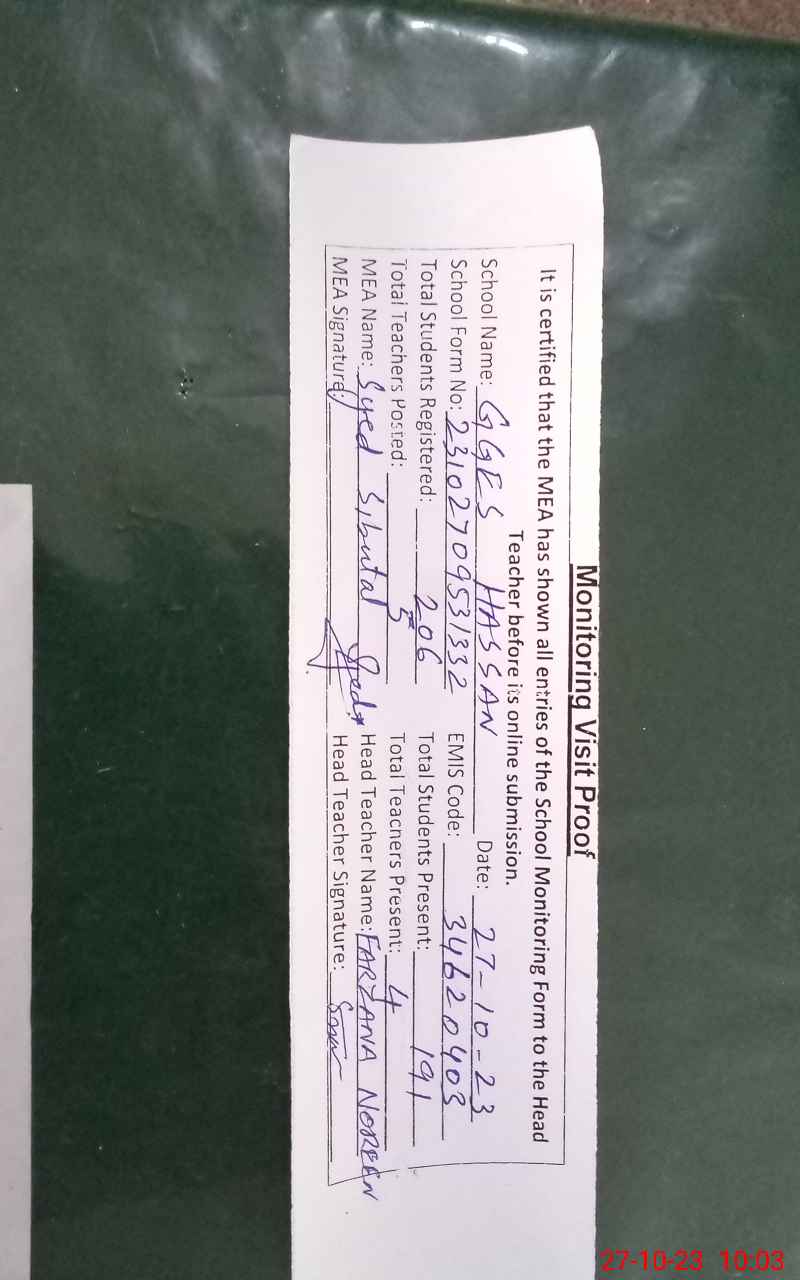 Monitoring Visit Proof
It is certified that the MEA has shown all entries of the School Monitoring Form to the Head
Teacher before its online submission.
School Name: GGES HASSAN Date: 27-10-23
School Form No: 23102709531332 EMIS Code: 34620403
Total Students Registered: 206 Total Students Present: 191
Total Teachers Posted: 5 Total Teachers Present: 4
MEA Name: Syed Sibutal Head Teacher Name: FARZANA NOREEN
MEA Signature: Head Teacher Signature:
27-10-23 10:03